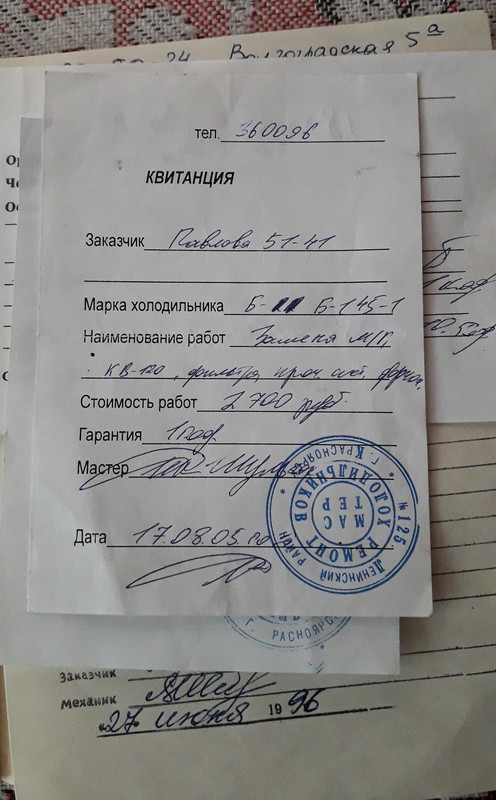 24 Волгоградская 5а
тел. 360096
КВИТАНЦИЯ
Заказчик Павлова 51-41
Марка холодильника Б- Б-145-1
Наименование работ Замена М/К
КВ-120, фильтра,
Стоимость работ 2700 руб.
Гарантия 1 год
Мастер
Дата 17.08.05
ЛЕНИНСКИЙ РАЙОН Г. КРАСНОЯРСК
№125
РЕМОНТ ХОЛОДИЛЬНИКОВ
МАС
ТЕР
Г. РАСНОЯРС
Заказчик
Механик
«27» июня 1996